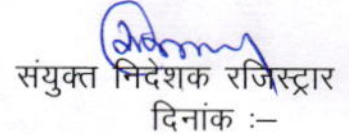 संयुक्त निदेशक रजिस्ट्रार
दिनांक :—